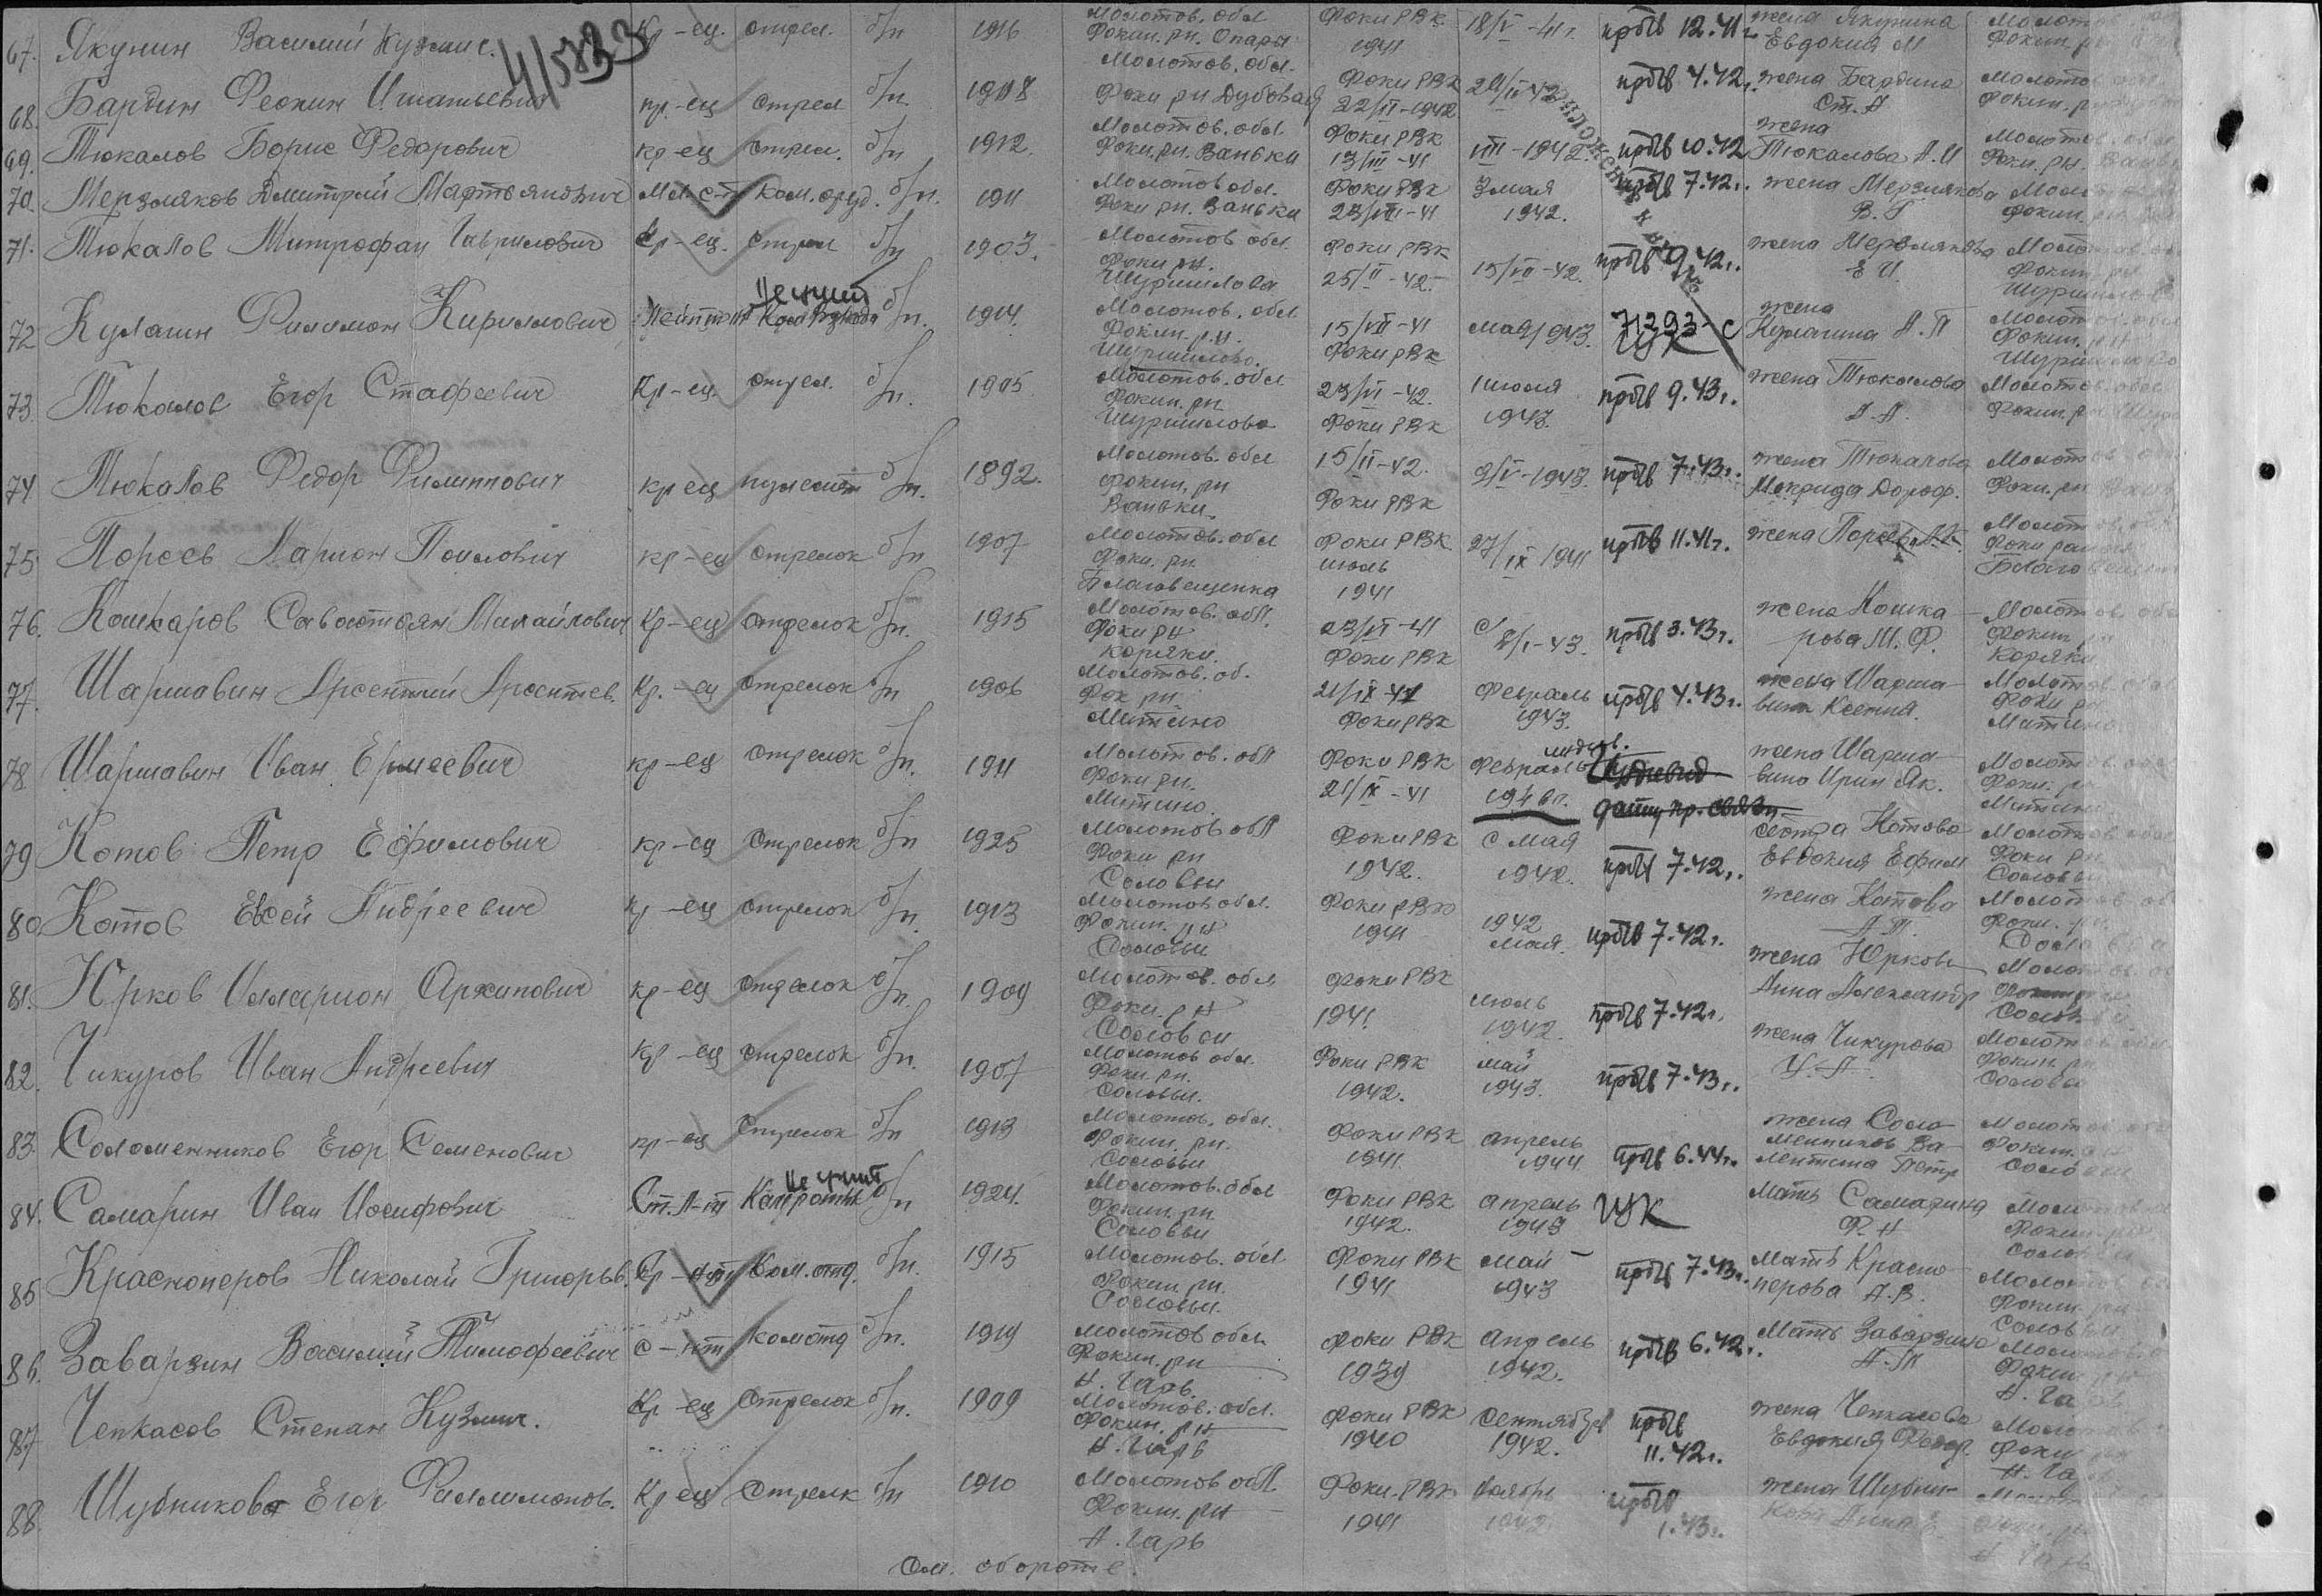 67. Якунин Василий Кузмич. Кр-ец. стрел. б/п 1916 Молотов. обл Фокин. рн. Опары Фоки РВК 1941 18/V-41г. прбв 12.41г. жена Якунина Евдокия М Молотов Фокин. рн
4/5833
68. Бардин Феокин кр-ец стрел б/п. 1908 Молотов. обл. Фоки рн Дубовая Фоки РВК 22/II-1942 прбв 4.42г. жена Бардина Ст. А Молотов Фокин. рн
69. Тюкалов Борис Федорович кр-ец стрел. б/п 1912. Молотов. обл. Фоки. рн. Ваньки Фоки РВК 13/III-41 1942. прбв 10.42 жена Тюкалова А.И Молотов. обл Фоки. рн. Ваньк
70. Мерзляков Дмитрий Мл. с-т ком. оруд. б/п. 1911 Молотов обл. Фоки рн. Ваньки Фоки РВК 23/VIII-41 3 мая 1942. прбв 7.42г. жена Мерзлякова В.Г Молот Фокин. рн
71. Тюкалов Митрофан Гаврилович Кр-ец. стрел б/п 1903. Молотов обл. Фоки рн. Шуршилова Фоки РВК 25/II-42. 15/VII-42. прбв 9.42г. жена Мерзлякова Е И. Молотов Фокин рн Шуршил
72 Кулагин Филимон Кириллович Лейтенант Ком Взвода Не учит б/п. 1914. Молотов. обл Фокин. р.н. Шуршилово. 15/VII-41 Фоки РВК мая 1943. 71393-с ЦК жена Кулагина А.П Молотов. обл Фокин. рн Шуршилово
73. Тюкалов Егор Стафеевич Кр-ец. стрел. б/п. 1905 Молотов. обл Фокин. рн Шуршилово 23/VI-42. Фоки РВК 1 июля 1943. прбв 9.43г. жена Тюкалова А.А. Молотов. обл Фокин. рн
74 Тюкалов Федор Филиппович кр ец пулемет б/п. 1892. Молотов. обл Фокин. рн Ваньки. 15/II-42. Фоки РВК 9/V-1943. прбв 7.43г. жена Тюкалова Мокрида Дороф. Молотов Фоки. рн Ваньк
75 Порсев Ларион Павлович кр-ец стрелок б/п 1907 Молотов. обл Фоки. рн Благовещенка Фоки РВК июль 1941 27/IX 1941 прбв 11.41г. жена Порсева Молотов. об Фоки район Благовещен
76. Кошкаров Савостоян Михайлович Кр-ец стрелок б/п. 1915 Молотов. обл. Фоки рн Коряки. 23/VI-41 Фоки РВК 8/I-43. прбв 3.43г. жена Кошкарова М.Ф. Молотов. обл Фокин рн Коряки
77. Шаршавин Арсентий Арсентьев. Кр.-ец стрелок б/п 1906 Молотов. об. Фок рн. Митино 21/IX-41 Фоки РВК Февраль 1943. прбв 4.43г. жена Шаршавин Ксения. Молотов. обл Фоки рн Митино
78 Шаршавин Иван Ермеевич кр-ец стрелок б/п. 1911 Молотов. обл Фоки рн. Митино. Фоки РВК 21/IX-41 Февраль дату пр. связи жена Шаршавина Ирин Як. Молотов. обл Фоки. рн Митино
79 Котов Петр Ефимович кр-ец стрелок б/п 1925 Молотов обл Фоки рн Соловьи Фоки РВК 1942. С мая 1942. прбв 7.42г. сестра Котова Евдокия Ефим Молотов обл Фоки рн Соловьи
80. Котов Евсей Андреевич кр-ец стрелок б/п. 1913 Молотов обл. Фокин. рн Соловьи Фоки РВК 1941 1942 мая. прбв 7.42г. жена Котова А.П. Молотов. об Фоки. рн. Соловьи
81. Юрков Илларион Архипович кр-ец стрелок б/п. 1909 Молотов. обл. Фоки. рн Соловьи Фоки РВК 1941. июль 1942. прбв 7.42г. жена Юркова Анна Александр Молотов. об Фокин рн Соловьи
82. Чикуров Иван Андреевич кр-ец стрелок б/п. 1907 Молотов обл. Фоки. рн. Соловьи. Фоки РВК 1942. май 1943. прбв 7.43г. жена Чикурова Молотов обл Фокин. рн. Соловьи
83. Соломенников Егор Семенович кр-ец стрелок б/п 1913 Молотов. обл. Фокин. рн. Соловьи Фоки РВК 1941. апрель 1944 прбв 6.44г. жена Соломенников Валентина Петр Молотов. обл Фокин. рн Соловьи
84. Самарин Иван Иосифович Ст. Л-т Комроты Не учит б/п 1921. Молотов. обл Фокин. рн. Соловьи Фоки РВК 1942. апрель 1943 ЦК Мать Самарина Ф.Н Молотов Фокин рн Соловьи
85 Красноперов Николай Григорьев. Ком. отд. б/п. 1915 Молотов. обл. Фокин. рн. Соловьи. Фоки РВК 1941 май 1943 прбв 7.43г. Мать Красноперова А.В. Молотов Фокин. рн Соловьи
86. Заварзин Василий Тимофеевич с-нт комотд б/п. 1919 Молотов обл. Фокин. рн Н. Гарь. Фоки РВК 1939 апрель 1942. прбв 6.42г. Мать Заварзина А.П Молотов Фокин рн Н. Гарь
87 Чепкасов Степан Кузмич. Кр-ец стрелок б/п. 1909 Молотов. обл. Фокин. рн Н. Гарь Фоки РВК 1940 сентябрь 1942. прбв 11.42г. жена Чепкасова Евдокия Федор. Молотов Фоки рн Н. Гарь
88. Шубников Егор Филлимонов. Кр ец Стрелк б/п 1910 Молотов обл. Фокин. рн Н. Гарь Фоки. РВК 1941 ноябрь 1942 прбв 1.43г. жена Шубникова Анна Е. Н Гарь
См. обороте.